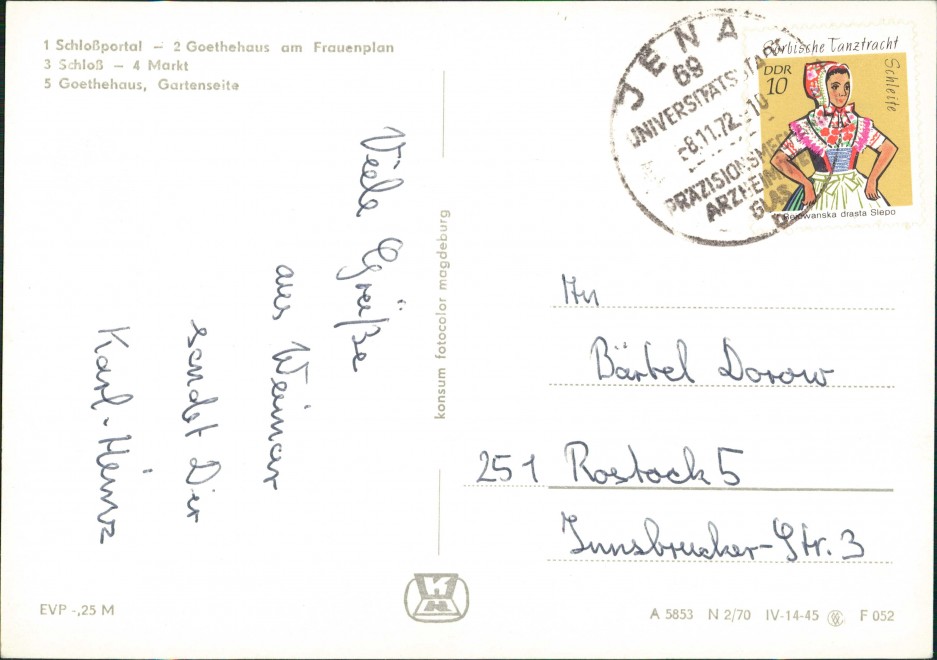 1 Schloßportal – 2 Goethehaus am Frauenplan
3 Schloß – 4 Markt
5 Goethehaus, Gartenseite
Viele Grüße
aus Weimar
sendet Dir
Karl-Heinz
konsum fotocolor magdeburg
JENA
69
UNIVERSITÄTSSTADT
-8.11.72.-10
PRÄZISIONSMECH
ARZNEIMITTEL
GLAS
Sorbische Tanztracht
Schleife
DDR
10
drasta Slepo
An
Bärbel Dorow
251 Rostock 5
Innsbrucker-Str. 3
EVP -,25 M
A 5853 N 2/70 IV-14-45 F 052